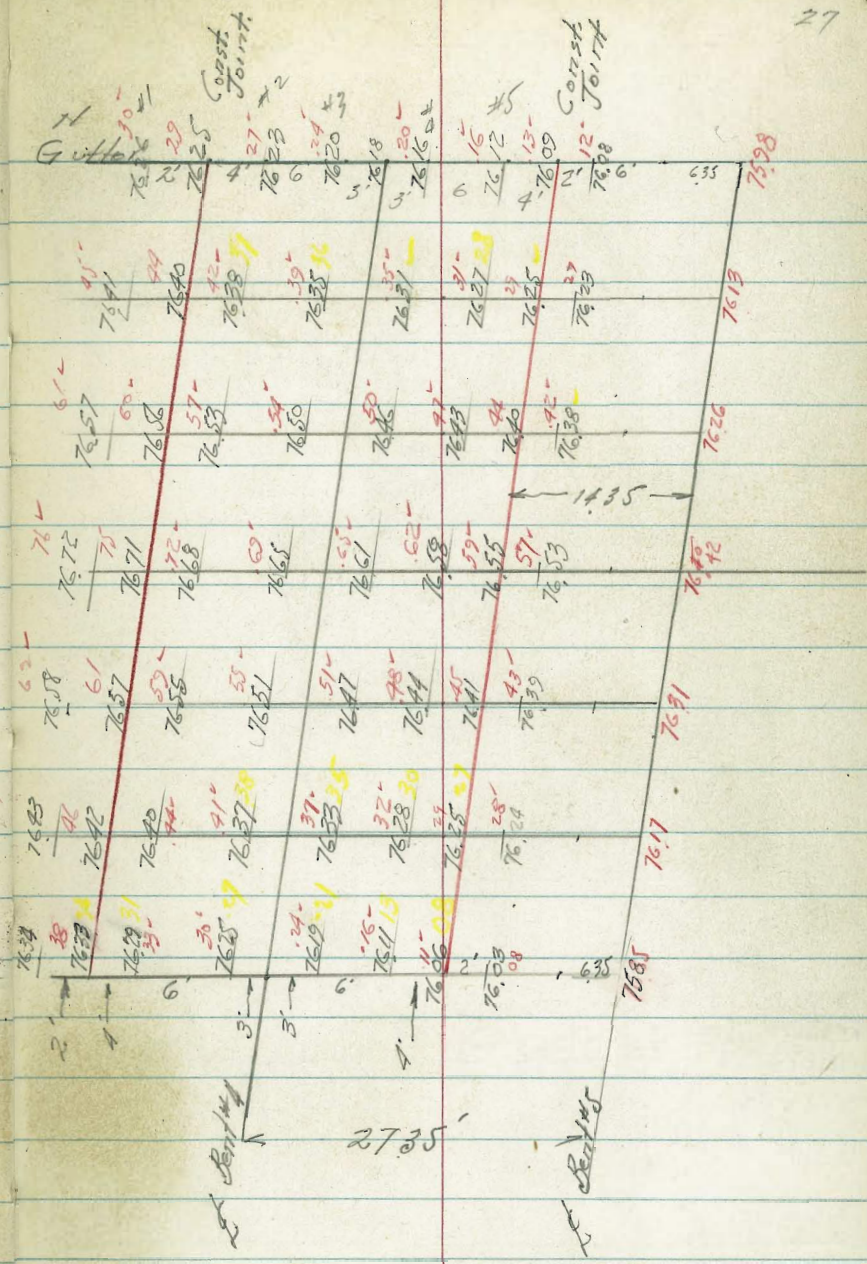 27
Const. Joint
Const. Joint
30- #1
29
27- #2
.24- #3
.20- #4
16- #5
.13-
12-
Gutter
76.25
76.23
76.20
76.18
76.16
76.12
76.09
76.08
2' 4' 6 3' 3' 6 4' 2' 6' 6.35
75.98
45- 44 42- .39- .35- 31- 29 27
76.41 76.40 76.38 76.35 76.31 76.27 76.25 76.23
76.13
61- 60- 57- .54- 50- 47- 44 .42-
76.57 76.56 76.53 76.50 76.46 76.43 76.40 76.38
76.26
14.35
76- 75 .72- .69- .65- .62- 59- 57-
76.72 76.71 76.68 76.65 76.61 76.58 76.55 76.53
.42
62- 61 59- 55- .51- .48- 45 43-
76.58 76.57 76.55 76.51 76.47 76.44 76.41 76.39
76.31
46 41- 38 37- 35 32- 30 29 27 28-
76.43 76.42 76.40 76.37 76.33 76.28 76.25 76.24
44-
76.17
38 30- .24- .16- 11-
76.34 76.33 76.29 31 76.25 76.19 21 76.11 13 76.06 08 76.03
33- 08
2' 4' 6' 3' 3' 6' 4' 2' 6.35
75.85
Bent #4
27.35'
Bent #5